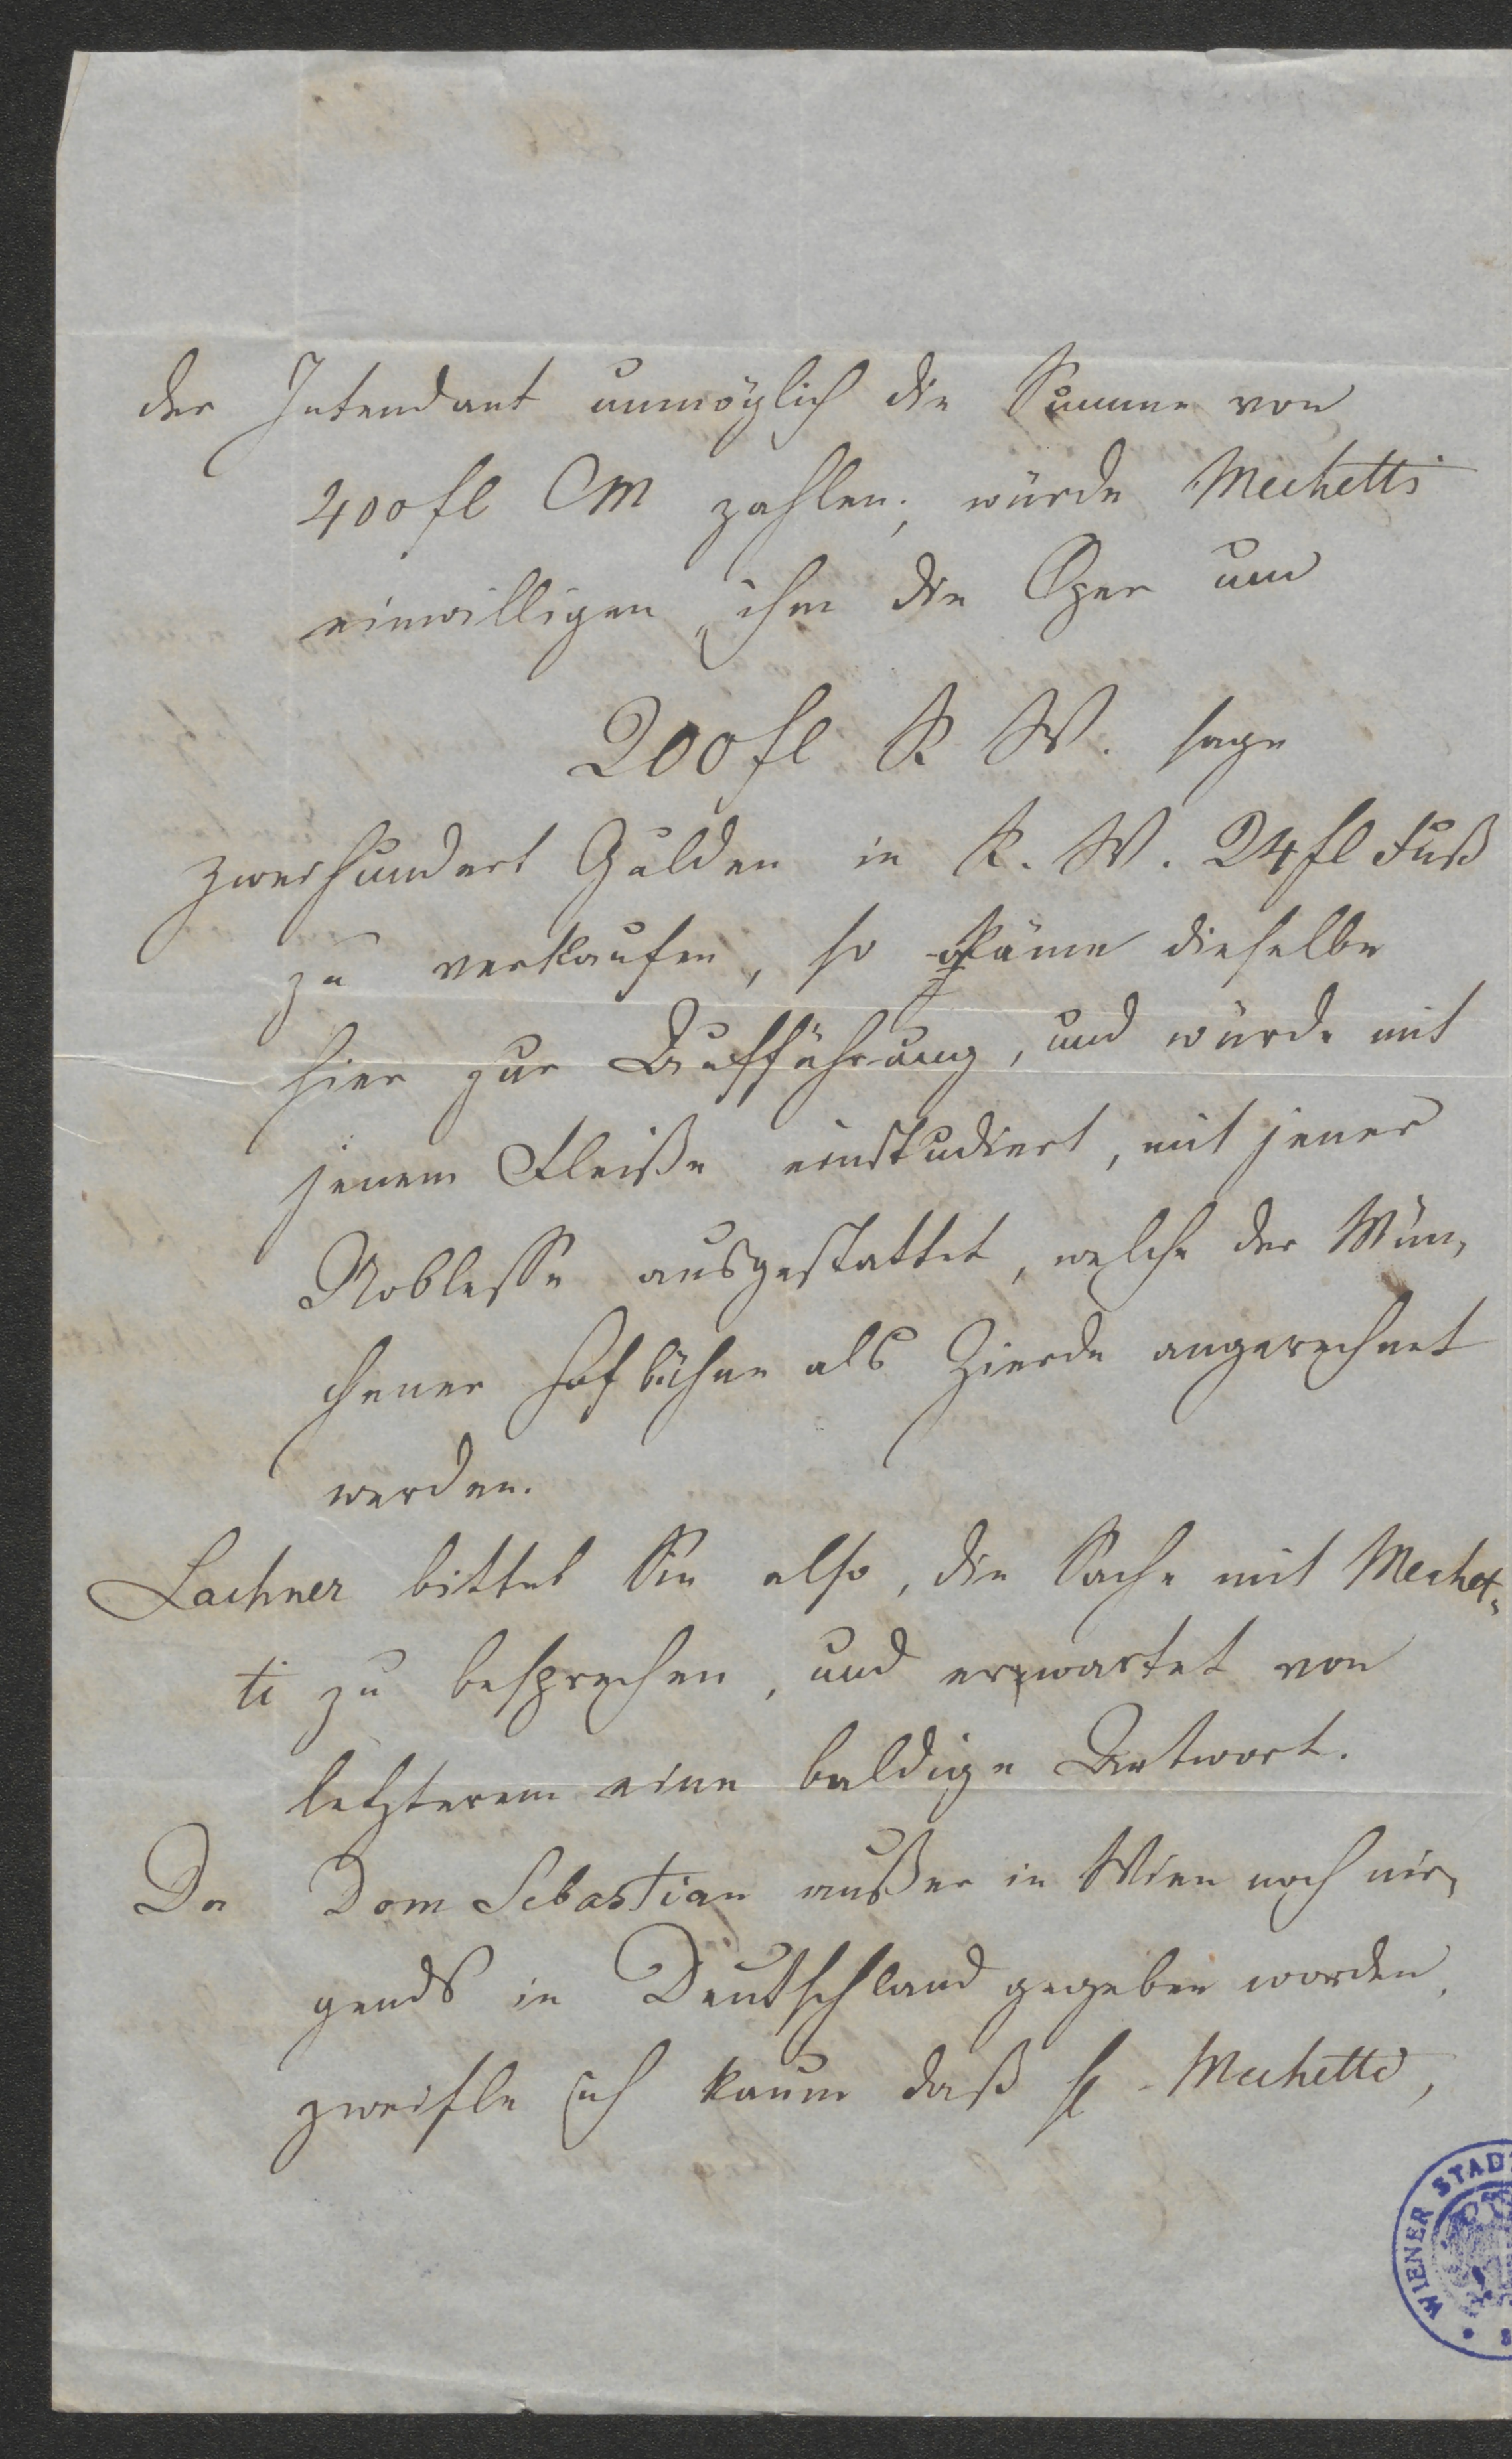 der Intendant unmöglich die Summe von
400 fl CM zahlen; würde Mechetti
einwilligen, ihm die Oper um
200 fl R. W. sage
zweihundert Gulden in R. W. 24 fl Fuß
zu verkaufen, so käme dieselbe
hier zur Aufführung, und würde mit
jenem Fleiße einstudiert, mit jener
Noblesse ausgestattet, welche der Mün-
chener Hofbühne als Zierde angerechnet
werden.
Lachner bittet Sie also, die Sache mit Mechet-
ti zu besprechen, und erwartet von
letzterem eine baldige Antwort.
Da Dom Sebastian außer in Wien noch nir-
gends in Deutschland gegeben worden,
zweifle ich kaum daß H. Mechetti,
WIENER STAD